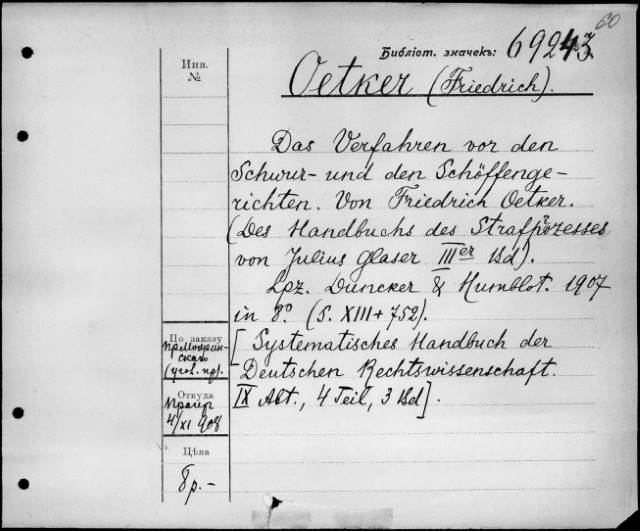 60
Библіот. значекъ: 69243.
Инв.
№
Oetker (Friedrich).
Das Verfahren vor den
Schwur- und den Schöffenge-
richten. Von Friedrich Oetker.
(Des Handbuchs des Strafprozesses
von Julius Glaser III er Bd).
Lpz. Duncker & Humblot. 1907
in 8º. (S. XIII + 752).
[Systematisches Handbuch der
Deutschen Rechtswissenschaft.
IX Abt., 4 Teil, 3 Bd].
По заказу
(угол. пр.)
Откуда
4/XI 908
Цѣна
8 р.-